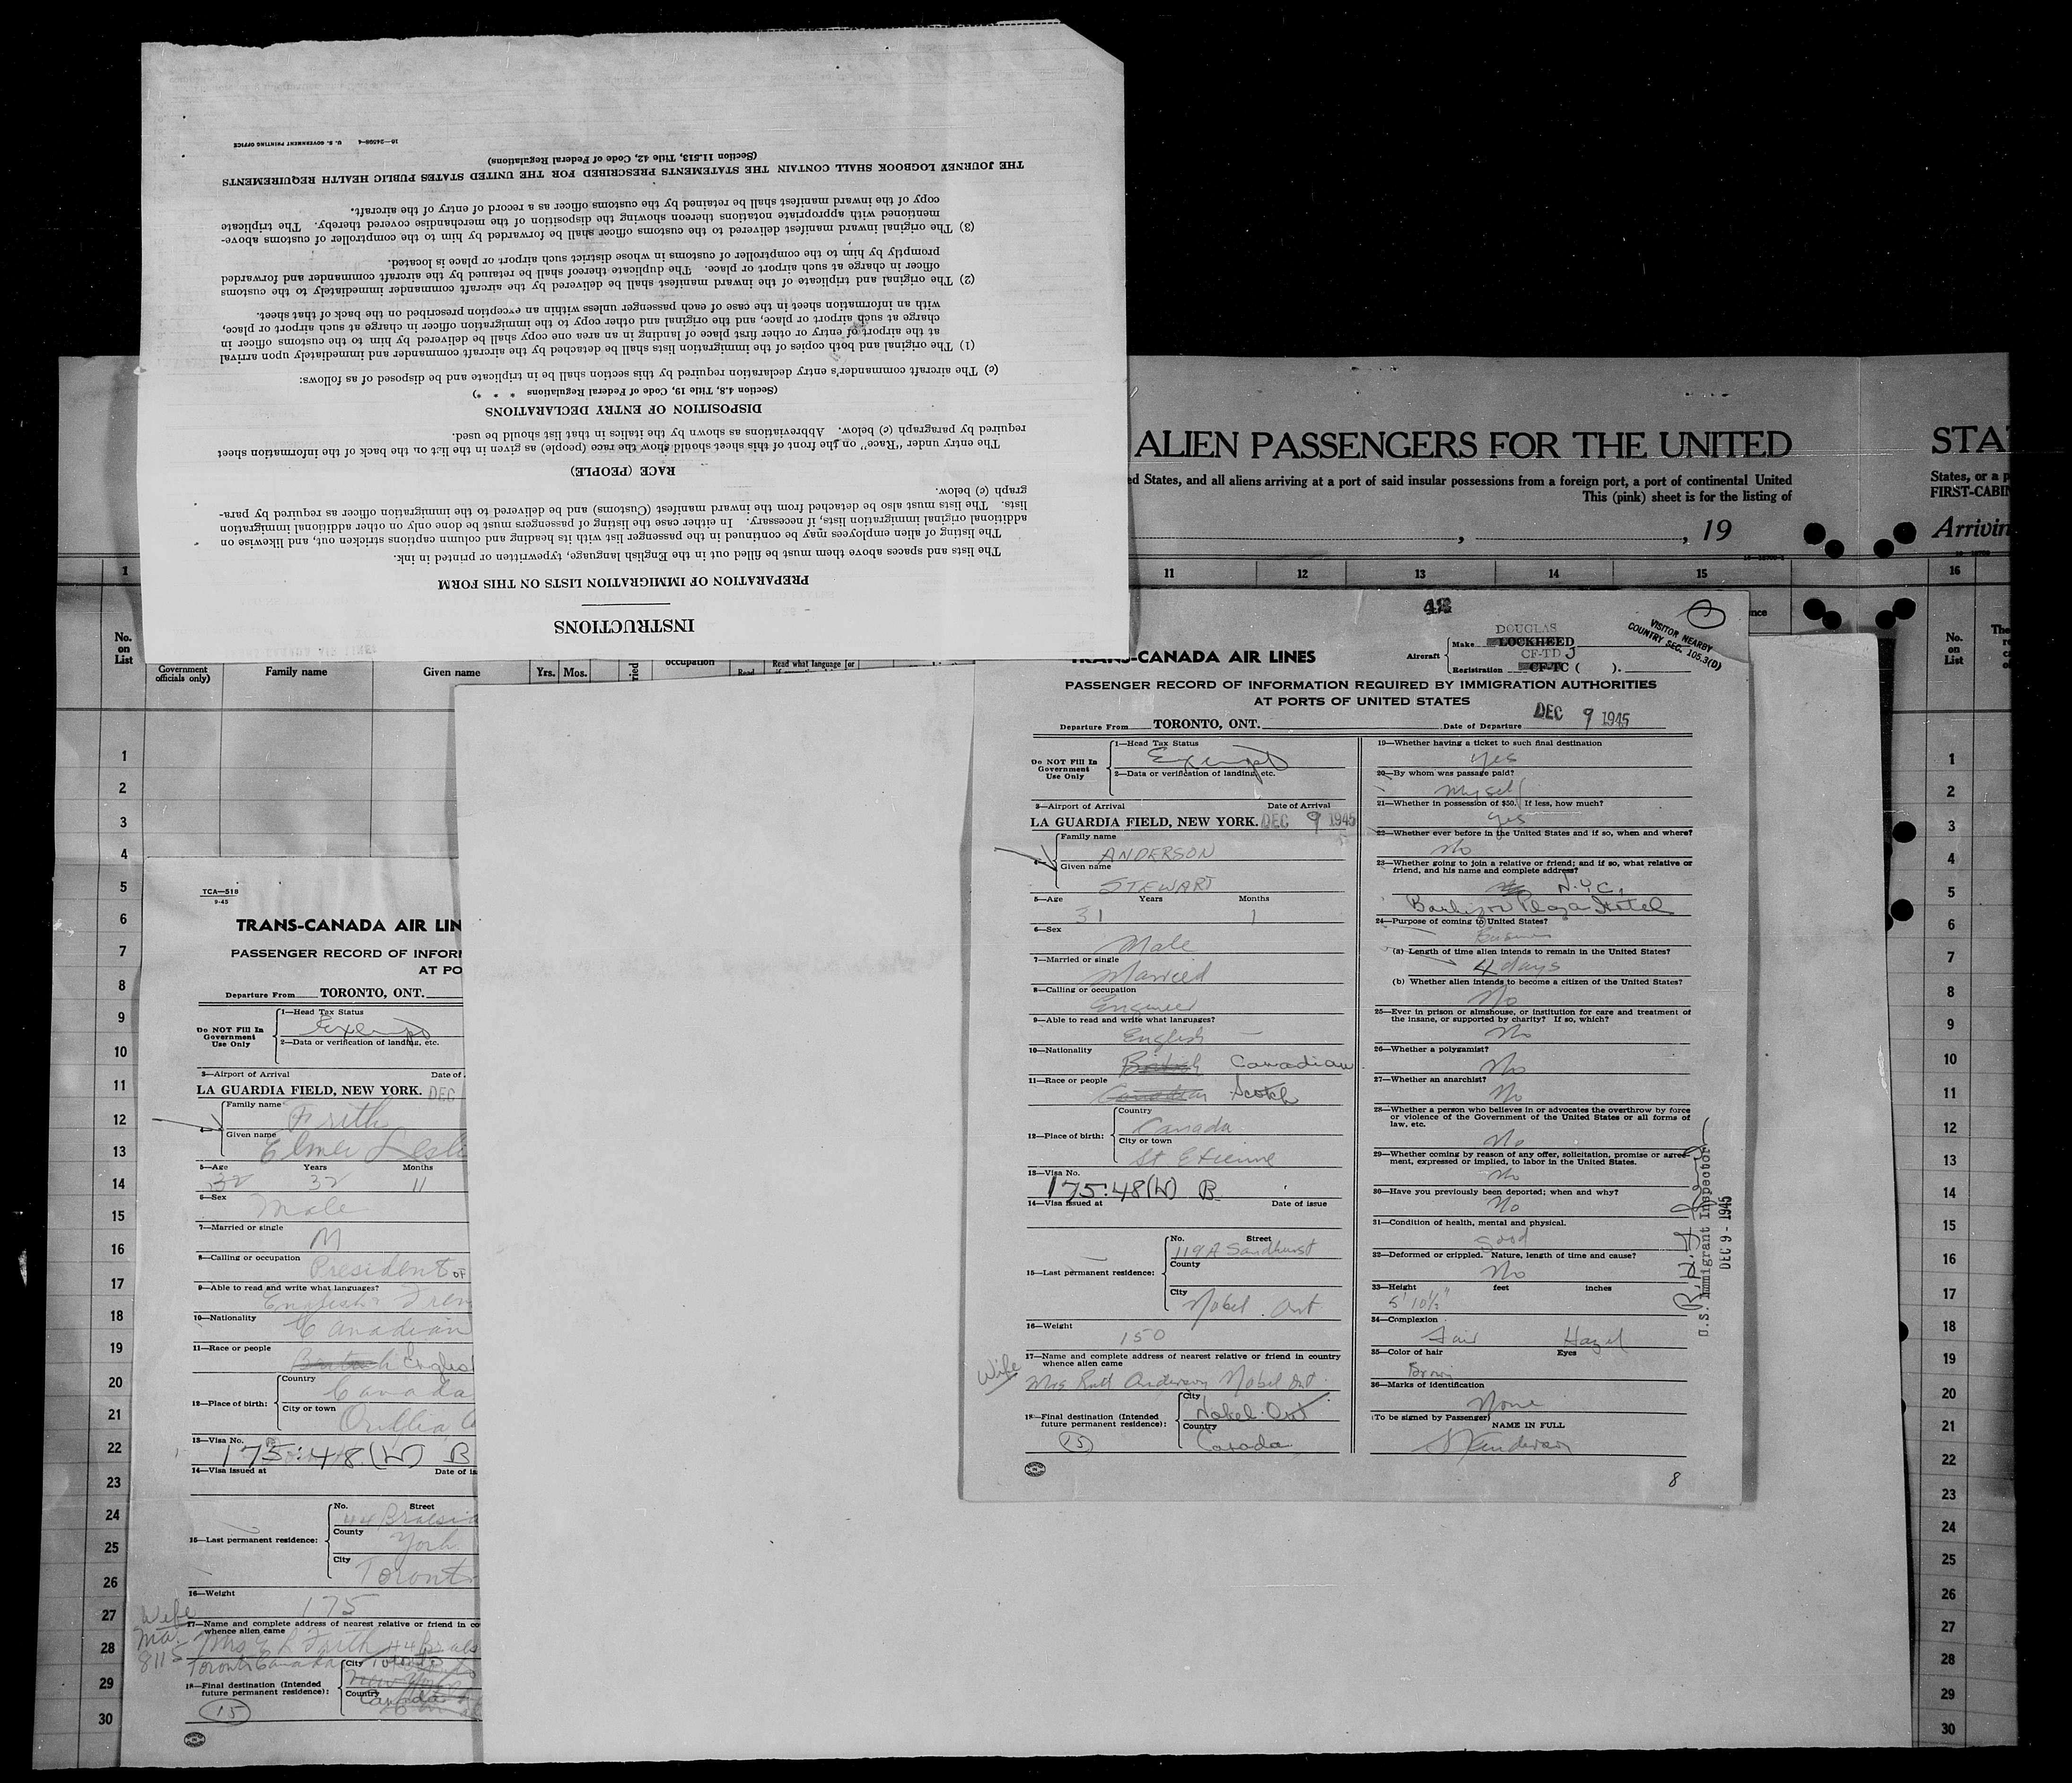 INSTRUCTIONS
PREPARATION OF IMMIGRATION LISTS ON THIS FORM
The lists and spaces above them must be filled out in the English language, typewritten or printed in ink.
The listing of alien employees may be continued in the passenger list with its heading and column captions stricken out, and likewise on
additional original immigration lists, if necessary. In either case the listing of passengers must be done only on other additional immigration
lists. The lists must also be detached from the inward manifest (Customs) and be delivered to the immigration officer as required by para-
graph (c) below.
RACE (PEOPLE)
The entry under "Race" on the front of this sheet should show the race (people) as given in the list on the back of the information sheet
required by paragraph (c) below. Abbreviations as shown by the italics in that list should be used.
DISPOSITION OF ENTRY DECLARATIONS
(Section 4.8, Title 19, Code of Federal Regulations * * *)
(c) The aircraft commander's entry declaration required by this section shall be in triplicate and be disposed of as follows:
(1) The original and both copies of the immigration lists shall be detached by the aircraft commander and immediately upon arrival
at the airport of entry or other first place of landing in an area one copy shall be delivered by him to the customs officer in
charge at such airport or place, and the original and other copy to the immigration officer in charge at such airport or place,
with an information sheet in the case of each passenger unless within an exception prescribed on the back of that sheet.
(2) The original and triplicate of the inward manifest shall be delivered by the aircraft commander immediately to the customs
officer in charge at such airport or place. The duplicate thereof shall be retained by the aircraft commander and forwarded
promptly by him to the comptroller of customs in whose district such airport or place is located.
(3) The original inward manifest delivered to the customs officer shall be forwarded by him to the comptroller of customs above-
mentioned with appropriate notations thereon showing the disposition of the merchandise covered thereby. The triplicate
copy of the inward manifest shall be retained by the customs officer as a record of entry of the aircraft.
THE JOURNEY LOGBOOK SHALL CONTAIN THE STATEMENTS PRESCRIBED FOR THE UNITED STATES PUBLIC HEALTH REQUIREMENTS
(Section 11.513, Title 42, Code of Federal Regulations)
16—24598-4 U. S. GOVERNMENT PRINTING OFFICE
ALIEN PASSENGERS FOR THE UNITED STA
ed States, and all aliens arriving at a port of said insular possessions from a foreign port, a port of continental United States, or a p
This (pink) sheet is for the listing of FIRST-CABIN
, , 19 Arrivin
1 11 12 13 14 15 16
No. on List
Government officials only)
Family name Given name Yrs. Mos. occupation Read Read what language [or
No. on List
1
2
3
4
5
6
7
8
9
10
11
12
13
14
15
16
17
18
19
20
21
22
23
24
25
26
27
28
29
30
TCA—518
9-45
TRANS-CANADA AIR LIN
PASSENGER RECORD OF INFOR
AT PO
Departure From TORONTO, ONT.
Do NOT Fill In Government Use Only
1—Head Tax Status
Exempt
2—Data or verification of landing, etc.
3—Airport of Arrival Date of
LA GUARDIA FIELD, NEW YORK. DEC
Family name Frith
4—
Given name Elmer Lesli
5—Age Years Months
32 32 11
6—Sex
Male
7—Married or single
M
8—Calling or occupation
President OF
9—Able to read and write what languages?
English Fren
10—Nationality
Canadian
11—Race or people
British English
12—Place of birth: Country
Canada
City or town
Orillia
13—Visa No.
175:48(W) B
14—Visa issued at Date of is
No. Street
44 Braesid
15—Last permanent residence: County
York
City
Toronto
16—Weight
175
Wife
17—Name and complete address of nearest relative or friend in co
whence alien came
Mrs E L Frith 44 Braes
8115
Toronto Canada
18—Final destination (Intended future permanent residence): City Toronto
New York
Country
Canada
15
42
TRANS-CANADA AIR LINES
Aircraft
Make DOUGLAS LOCKHEED
CF-TD J
Registration CF-TC ( ).
VISITOR NEARBY
COUNTRY SEC. 105.3(D)
PASSENGER RECORD OF INFORMATION REQUIRED BY IMMIGRATION AUTHORITIES
AT PORTS OF UNITED STATES
Departure From TORONTO, ONT. Date of Departure DEC 9 1945
Do NOT Fill In Government Use Only
1—Head Tax Status
Exempt
2—Data or verification of landing, etc.
3—Airport of Arrival Date of Arrival
LA GUARDIA FIELD, NEW YORK. DEC 9 1945
Family name
ANDERSON
4—
Given name
STEWART
5—Age Years Months
31 1
6—Sex
Male
7—Married or single
Married
8—Calling or occupation
Engineer
9—Able to read and write what languages?
English
10—Nationality
British Canadian
11—Race or people
Canadian Scotch
12—Place of birth: Country
Canada
City or town
St Etienne
13—Visa No.
175:48(W) B
14—Visa issued at Date of issue
No. Street
119A Sandhurst
15—Last permanent residence: County
City
Nobel. Ont
16—Weight
150
17—Name and complete address of nearest relative or friend in country
whence alien came
Wife
Mrs Ruth Anderson Nobel Ont.
18—Final destination (Intended future permanent residence): City
Nobel. Ont
Country
Canada
15
19—Whether having a ticket to such final destination
yes
20—By whom was passage paid?
myself
21—Whether in possession of $50. If less, how much?
yes
22—Whether ever before in the United States and if so, when and where?
no
23—Whether going to join a relative or friend; and if so, what relative or
friend, and his name and complete address?
N.Y.C.
Barbizon Plaza Hotel
24—Purpose of coming to United States?
Business
(a) Length of time alien intends to remain in the United States?
4 days
(b) Whether alien intends to become a citizen of the United States?
No
25—Ever in prison or almshouse, or institution for care and treatment of
the insane, or supported by charity? If so, which?
No
26—Whether a polygamist?
No
27—Whether an anarchist?
No
28—Whether a person who believes in or advocates the overthrow by force
or violence of the Government of the United States or all forms of
law, etc.
No
29—Whether coming by reason of any offer, solicitation, promise or agree-
ment, expressed or implied, to labor in the United States.
No
30—Have you previously been deported; when and why?
No
31—Condition of health, mental and physical.
good
32—Deformed or crippled. Nature, length of time and cause?
No
33—Height feet inches
5' 10½"
34—Complexion
Fair Hazel
35—Color of hair Eyes
Brown
36—Marks of identification
None
(To be signed by Passenger)
NAME IN FULL
S Anderson
U.S. Immigrant Inspector
DEC 9 - 1945
8